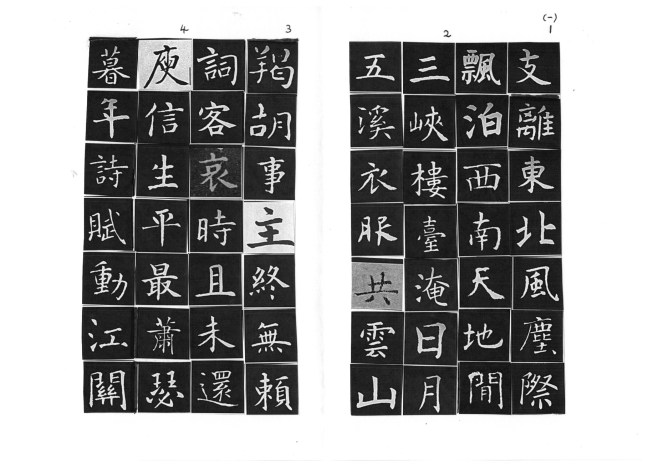 (一)
1
支離東北風塵際
飄泊西南天地閒
2
三峽樓臺淹日月
五溪衣服共雲山
3
羯胡事主終無賴
詞客哀時且未還
4
庾信生平最蕭瑟
暮年詩賦動江關